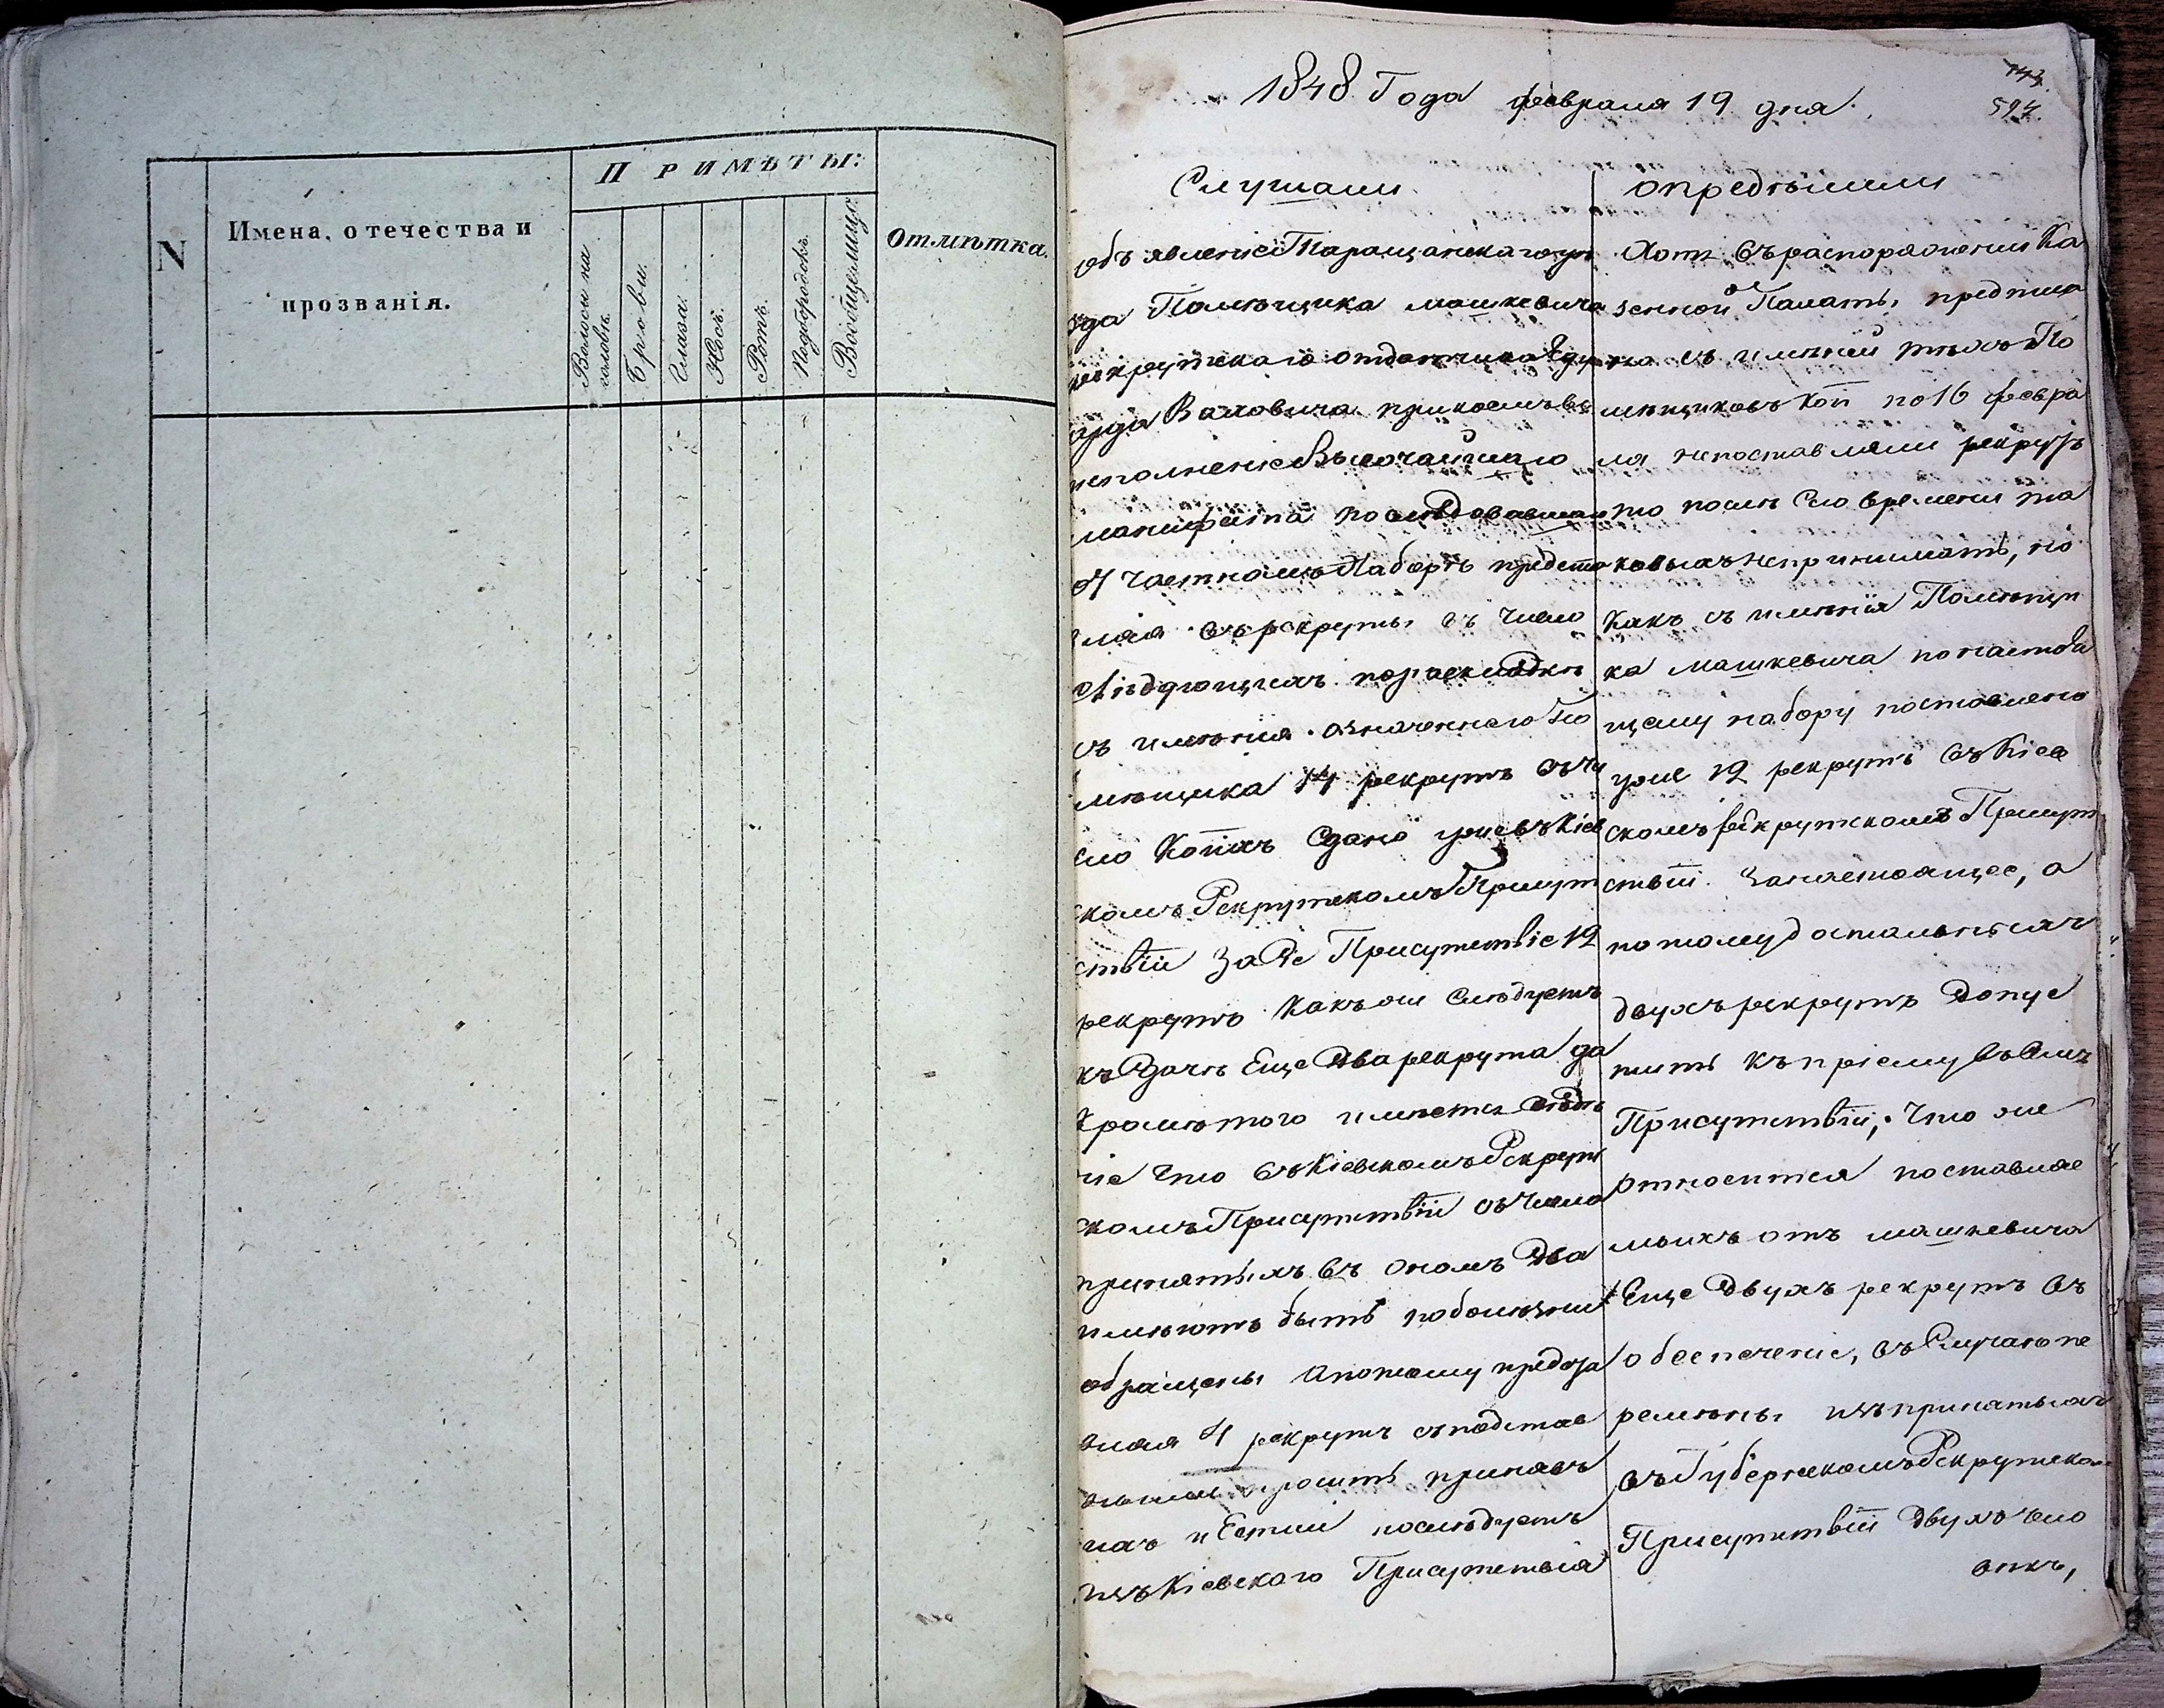 N
Имена, отечества и
прозванія.
ПРИМѢТЫ:
Волосы на
головѣ.
Брови.
Глаза.
Носъ.
Ротъ.
Подбородокъ.
Вообще лицо.
Отмѣтка.
1848 Года февраля 19 дня.
594.
Слушали
объявленіе Таращанскаго уѣ
зда Помѣщика Машкевича
рекрутскаго отдатчика Эду
арда Валовича при коемъ въ
исполненіе Высочайшаго
манифеста последовавшаго
о частномъ Наборѣ предста
вляя въ рекруты въ число
слѣдующихъ по раскладкѣ
съ имѣнія означеннаго По
мѣщика 14 рекрутъ въ чи
сло коихъ Сдано уже въ Кіев
скомъ Рекрутскомъ Присут
ствіи За сіе Присутствіе 12
рекрутъ Какъ же Слѣдуетъ
къ Здачѣ Еще два рекрута да
Кромѣ того имѣетъ свѣдѣ
ніе что въ Кіевскомъ Рекрут
скомъ Присутствіи съ числа
принятыхъ въ ономъ два
имѣютъ быть по болѣзни
обращены а потому предста
вляя 4 рекрутъ съ подстав
ными проситъ принять
ихъ и Естли послѣдуетъ
изъ Кіевскаго Присутствія
опредѣлили
Хотя въ распоряженіи Ка
зенной Палаты, предписа
но съ имѣній тѣхъ По
мѣщиковъ кои по 16 февра
ля непоставляли рекрутъ
то послѣ сего времени та
ковыхъ непринимать, но
Какъ съ имѣнія Помѣщи
ка Машкевича по настоя
щему набору поставлено
уже 12 рекрутъ въ Кіев
скомъ рекрутскомъ Присут
ствіи За настоящее, а
потому остальныхъ
двухъ рекрутъ допус
тить къ пріему въ Семъ
Присутствіи, Что же
относится поставляе
мыхъ отъ Машкевича
Еще двухъ рекрутъ въ
обеспеченіе, въ Случаѣ пе
ремѣны изъ принятыхъ
въ Губернскомъ Рекрутском
Присутствіи двухъ чело
вѣкъ,